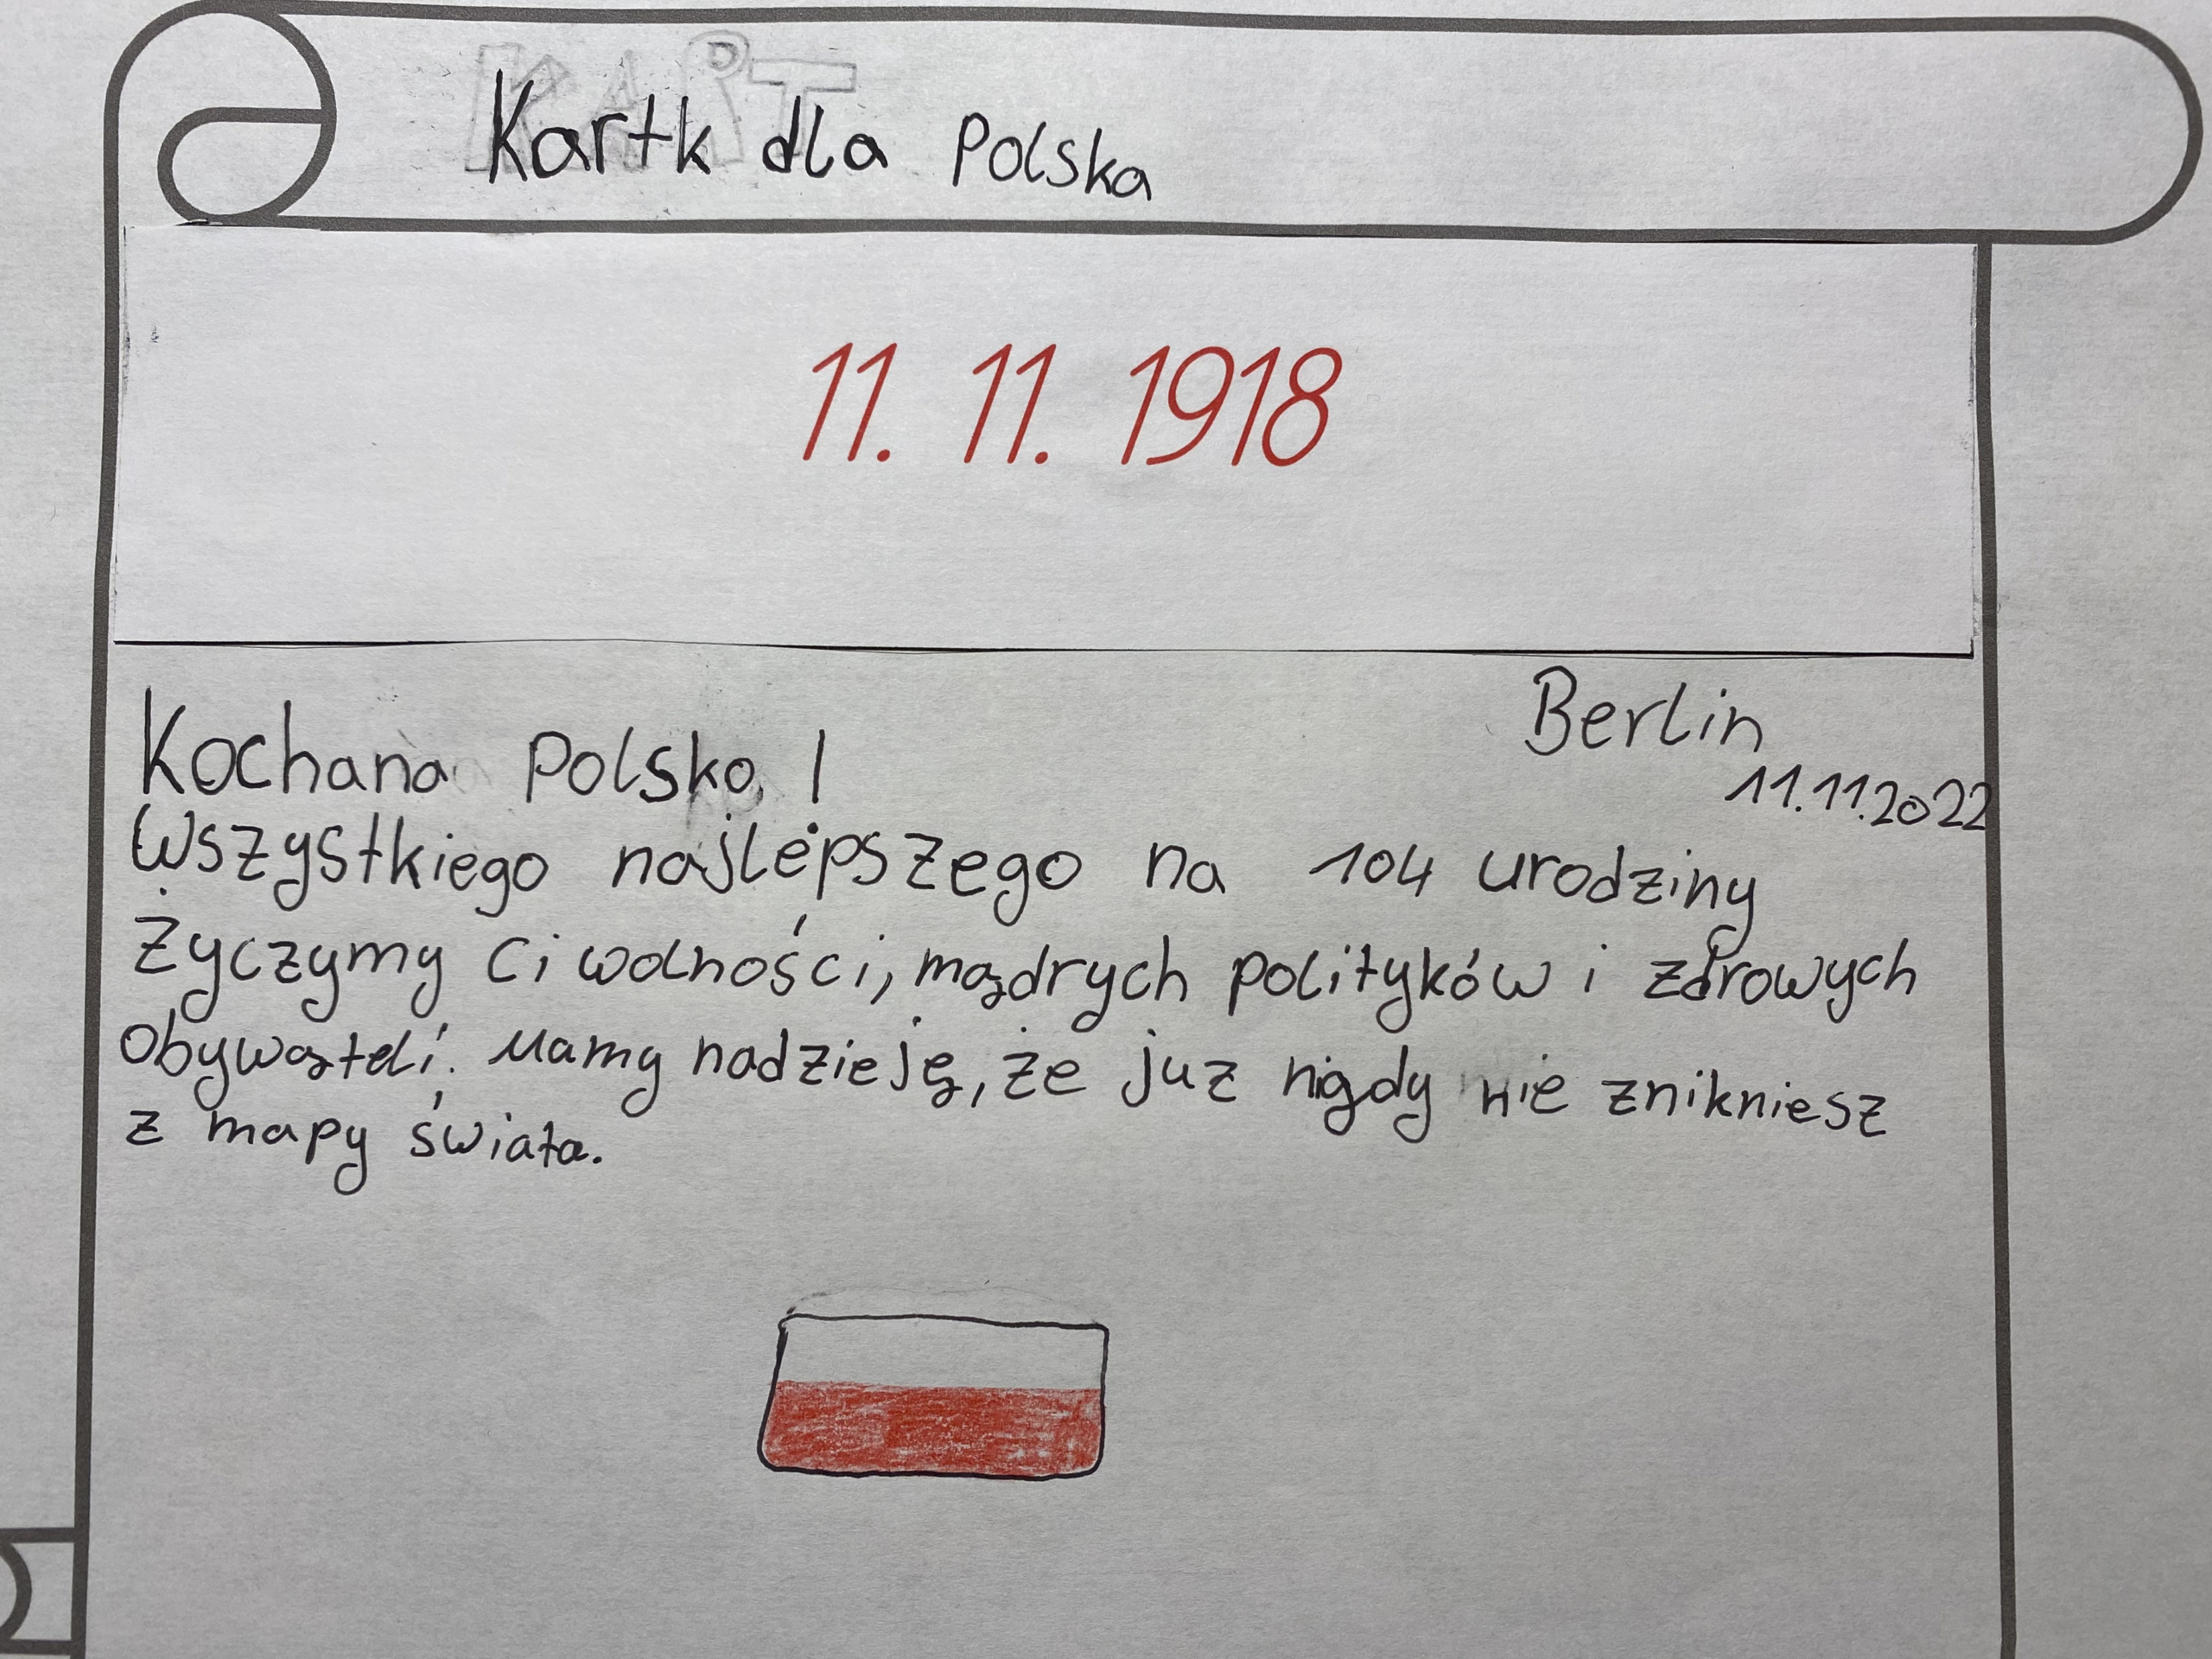 Kartk dla Polska
11. 11. 1918
Berlin
11.11.2022
Kochana Polsko !
Wszystkiego najlepszego na 104 urodziny
Życzymy Ci wolności, mądrych polityków i zdrowych
obywąteli. Mamy nadzieję, że juz nigdy nie znikniesz
z mapy świata.